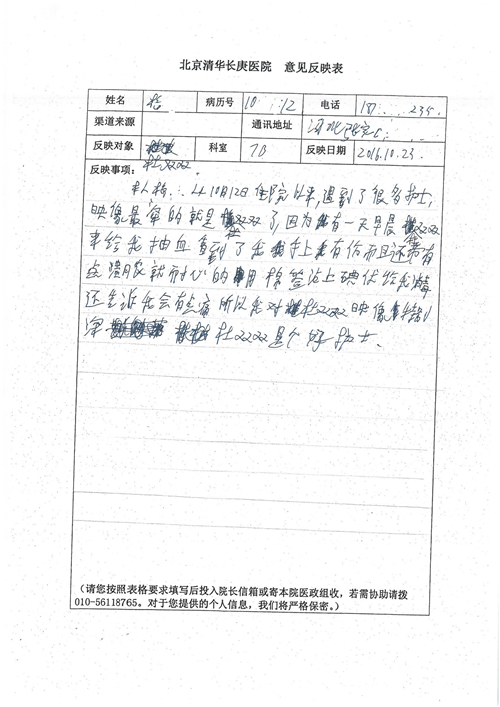 北京清华长庚医院 意见反映表
姓名 病历号 10 12 电话 187 235
渠道来源 通讯地址 河北
反映对象 科室 7B 反映日期 2016.10.23.
反映事项： 杜2222
本人 10月12日住院以来,遇到了很多护士,
映像最深的就是 2222了,因为有一天早晨 2222
来给我抽血看到了我手上有伤而且还带有
点 就耐心的用棉签沾上碘伏给我
还告诉我会有点痛所以我对杜2222映像特别
深 杜2222是个好护士.
(请您按照表格要求填写后投入院长信箱或寄本院医政组收，若需协助请拨
010-56118765。对于您提供的个人信息，我们将严格保密。)